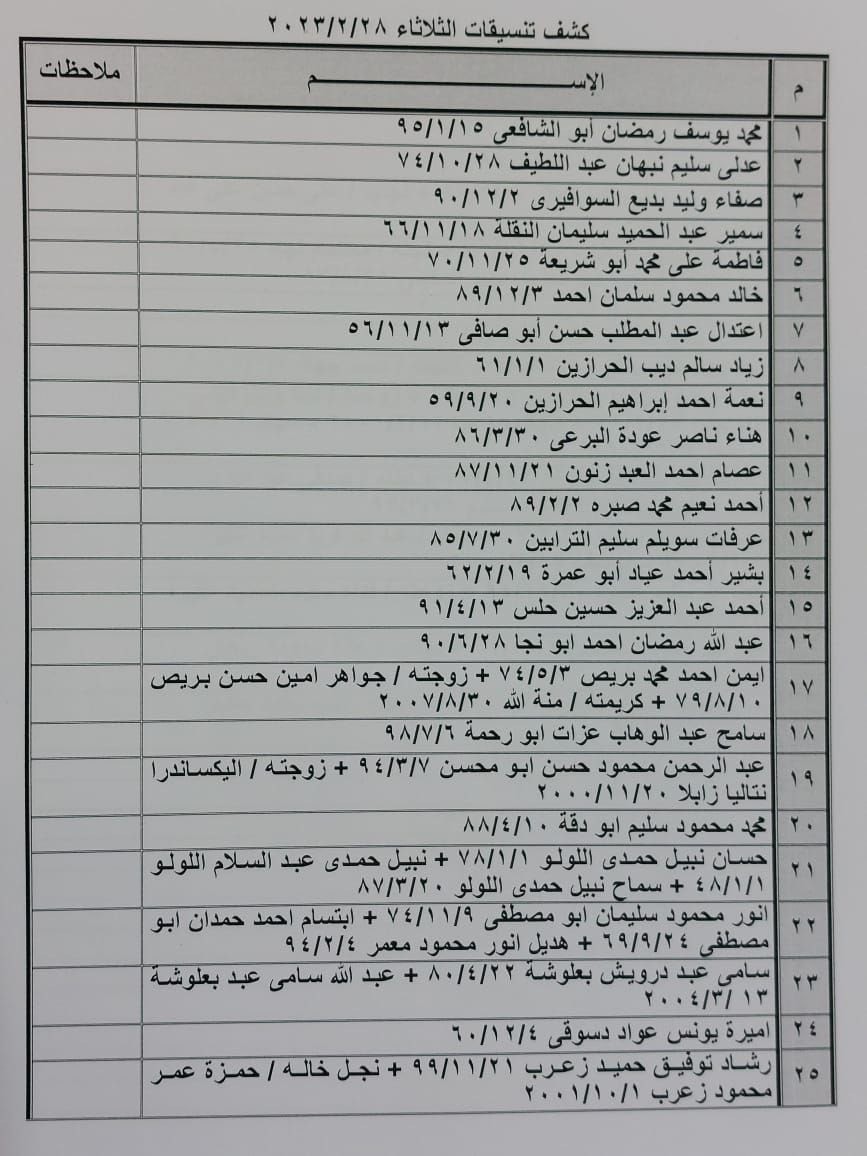 كشف تنسيقات الثلاثاء ٢٠٢٣/٢/٢٨
م الإســـــــم ملاحظات
١ محمد يوسف رمضان أبو الشافعى ٩٥/١/١٥
٢ عدلى سليم نبهان عبد اللطيف ٧٤/١٠/٢٨
٣ صفاء وليد بديع السوافيرى ٩٠/١٢/٢
٤ سمير عبد الحميد سليمان النقلة ٦٦/١١/١٨
٥ فاطمة على محمد أبو شريعة ٧٠/١١/٢٥
٦ خالد محمود سلمان احمد ٨٩/١٢/٣
٧ اعتدال عبد المطلب حسن أبو صافى ٥٦/١١/١٣
٨ زياد سالم ديب الحرازين ٦١/١/١
٩ نعمة احمد إبراهيم الحرازين ٥٩/٩/٢٠
١٠ هناء ناصر عودة البرعى ٨٦/٣/٣٠
١١ عصام احمد العبد زنون ٨٧/١١/٢١
١٢ أحمد نعيم محمد صبره ٨٩/٢/٢
١٣ عرفات سويلم سليم الترابين ٨٥/٧/٣٠
١٤ بشير أحمد عياد أبو عمرة ٦٢/٢/١٩
١٥ أحمد عبد العزيز حسين حلس ٩١/٤/١٣
١٦ عبد الله رمضان احمد ابو نجا ٩٠/٦/٢٨
١٧ ايمن احمد محمد بريص ٧٤/٥/٣ + زوجته / جواهر امين حسن بريص
٧٩/٨/١٠ + كريمته / منة الله ٢٠٠٧/٨/٣٠
١٨ سامح عبد الوهاب عزات ابو رحمة ٩٨/٧/٦
١٩ عبد الرحمن محمود حسن ابو محسن ٩٤/٣/٧ + زوجته / اليكساندرا
نتاليا زابلا ٢٠٠٠/١١/٢٠
٢٠ محمد محمود سليم ابو دقة ٨٨/٤/١٠
٢١ حسان نبيل حمدى اللولو ٧٨/١/١ + نبيل حمدى عبد السلام اللولو
٤٨/١/١ + سماح نبيل حمدى اللولو ٨٧/٣/٢٠
٢٢ انور محمود سليمان ابو مصطفى ٧٤/١١/٩ + ابتسام احمد حمدان ابو
مصطفى ٦٩/٩/٢٤ + هديل انور محمود معمر ٩٤/٢/٤
٢٣ سامى عبد درويش بعلوشة ٨٠/٤/٢٢ + عبد الله سامى عبد بعلوشة
٢٠٠٤/٣/ ١٣
٢٤ اميرة يونس عواد دسوقى ٦٠/١٢/٤
٢٥ رشاد توفيق حميد زعرب ٩٩/١١/٢١ + نجل خاله / حمزة عمر
محمود زعرب ٢٠٠١/١٠/١